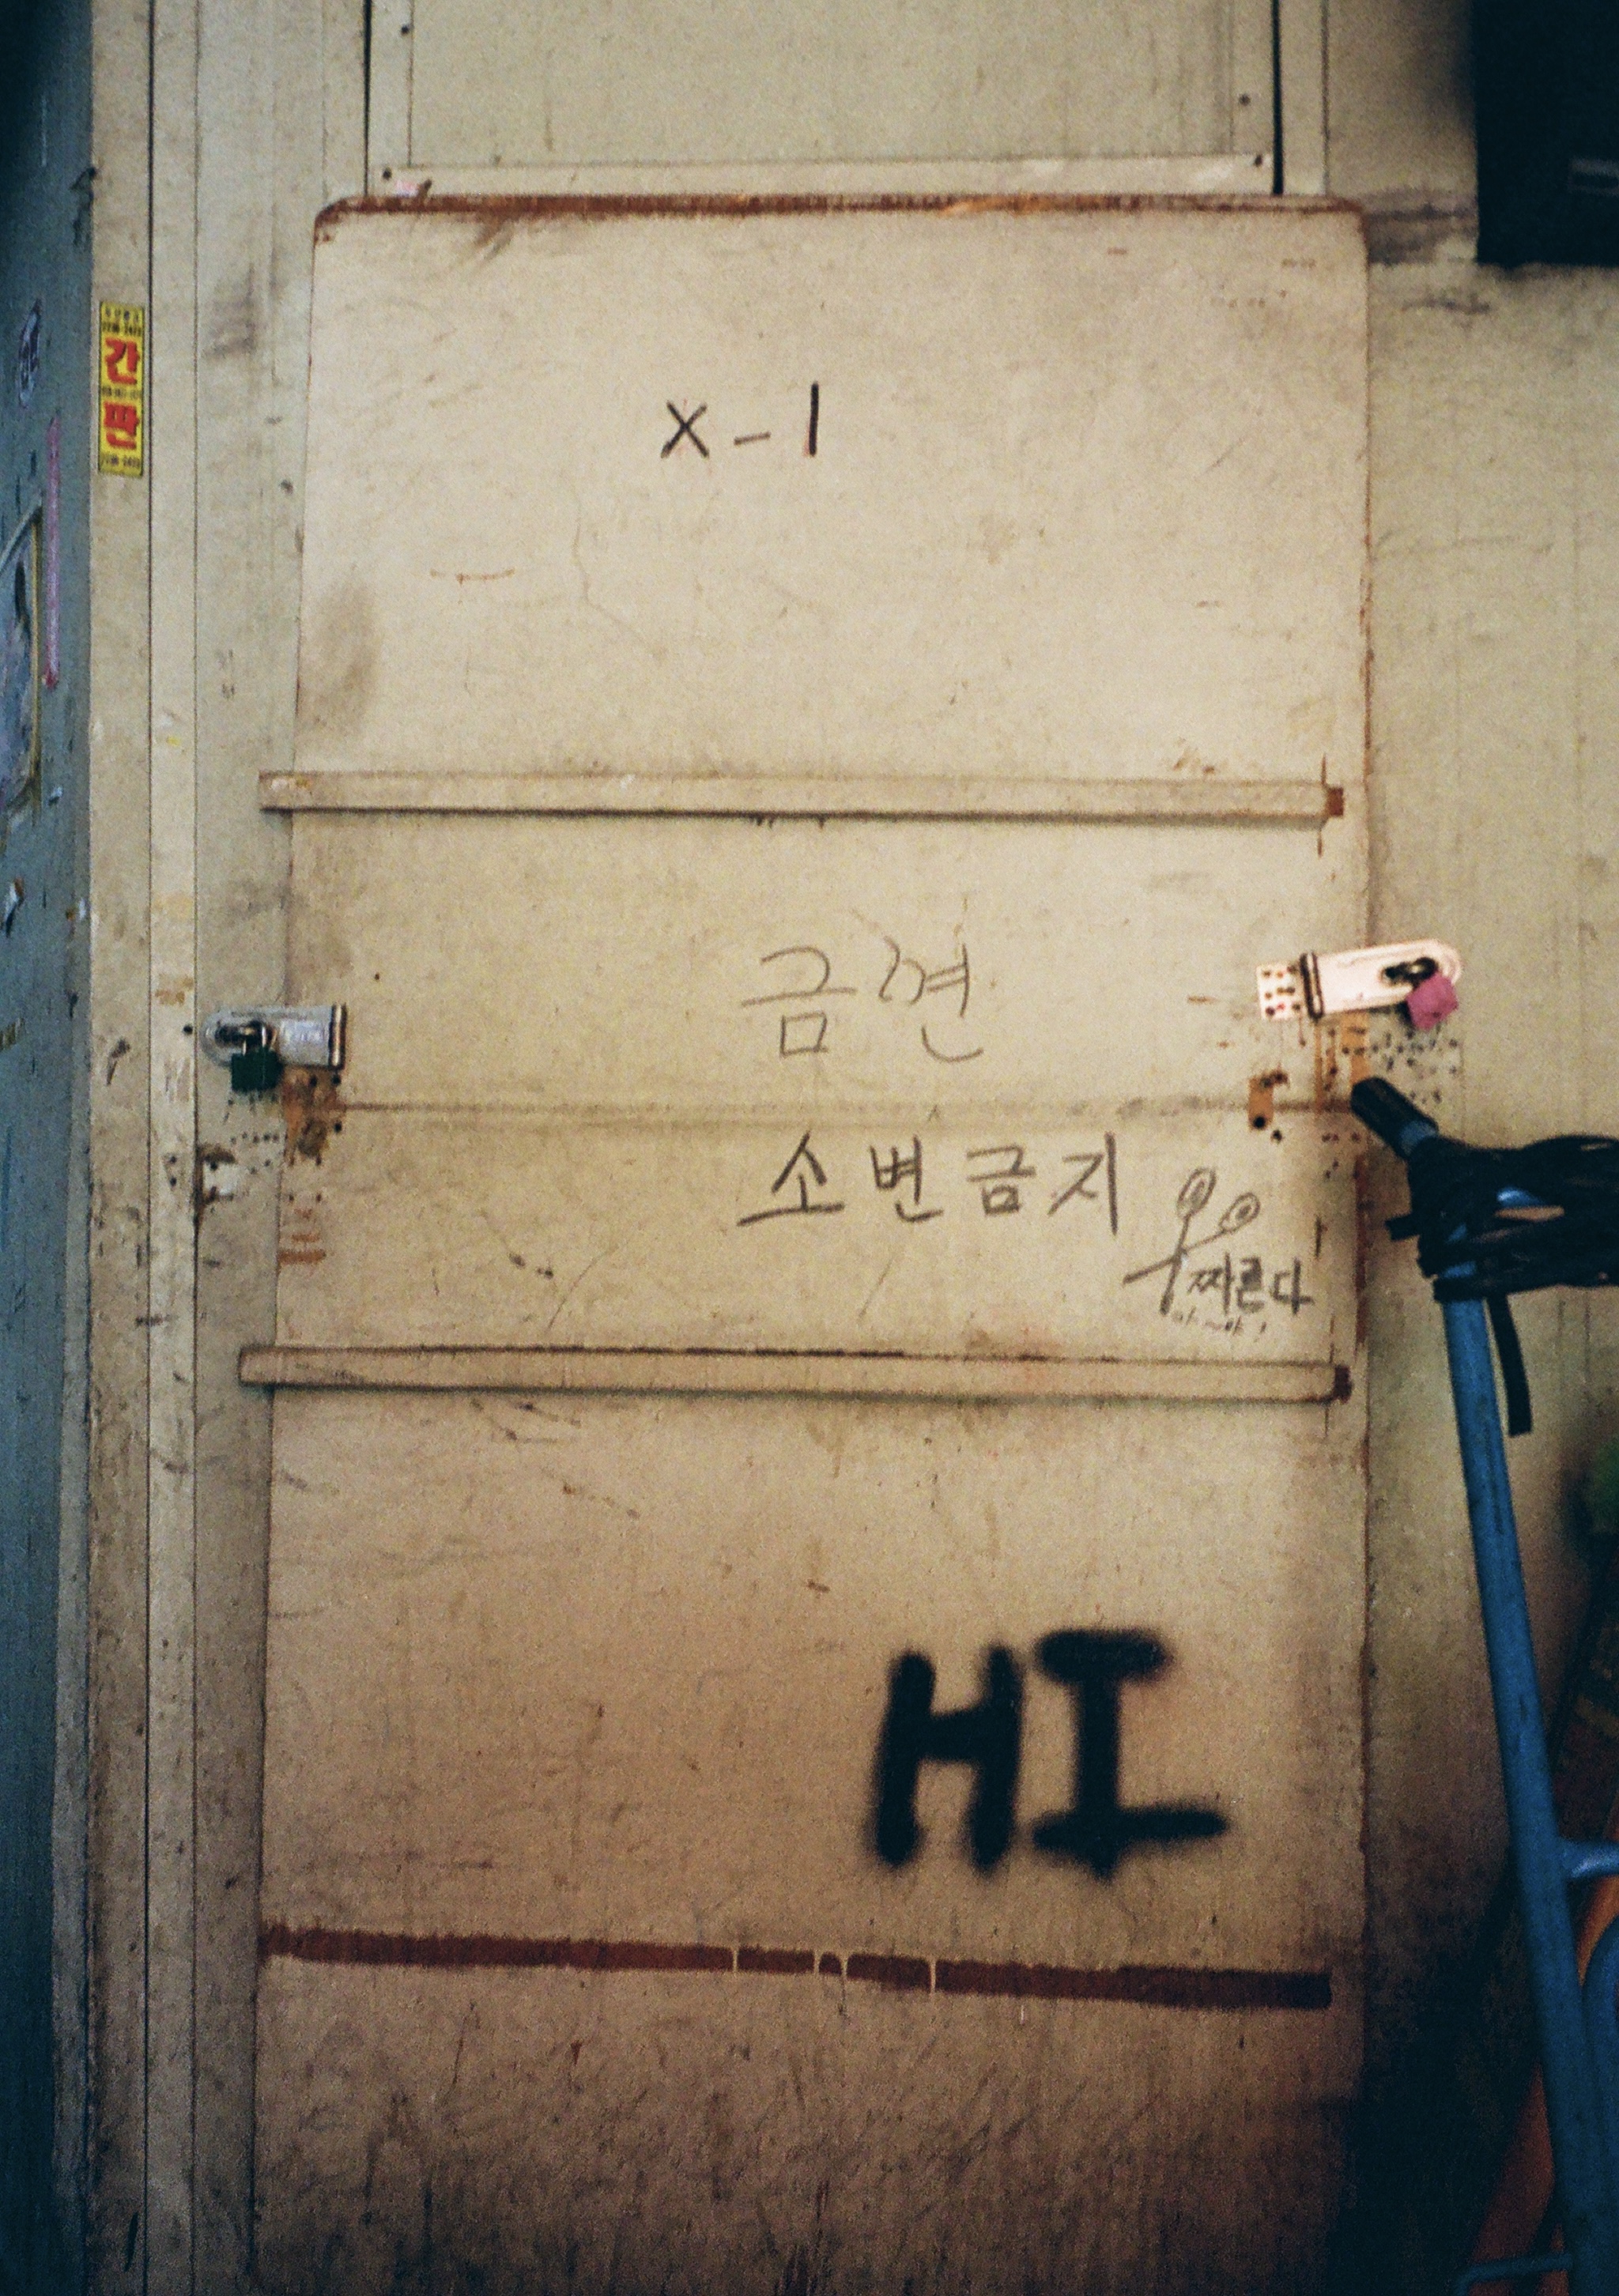 간
판
X-1
금연
소변금지
짜른다
HI